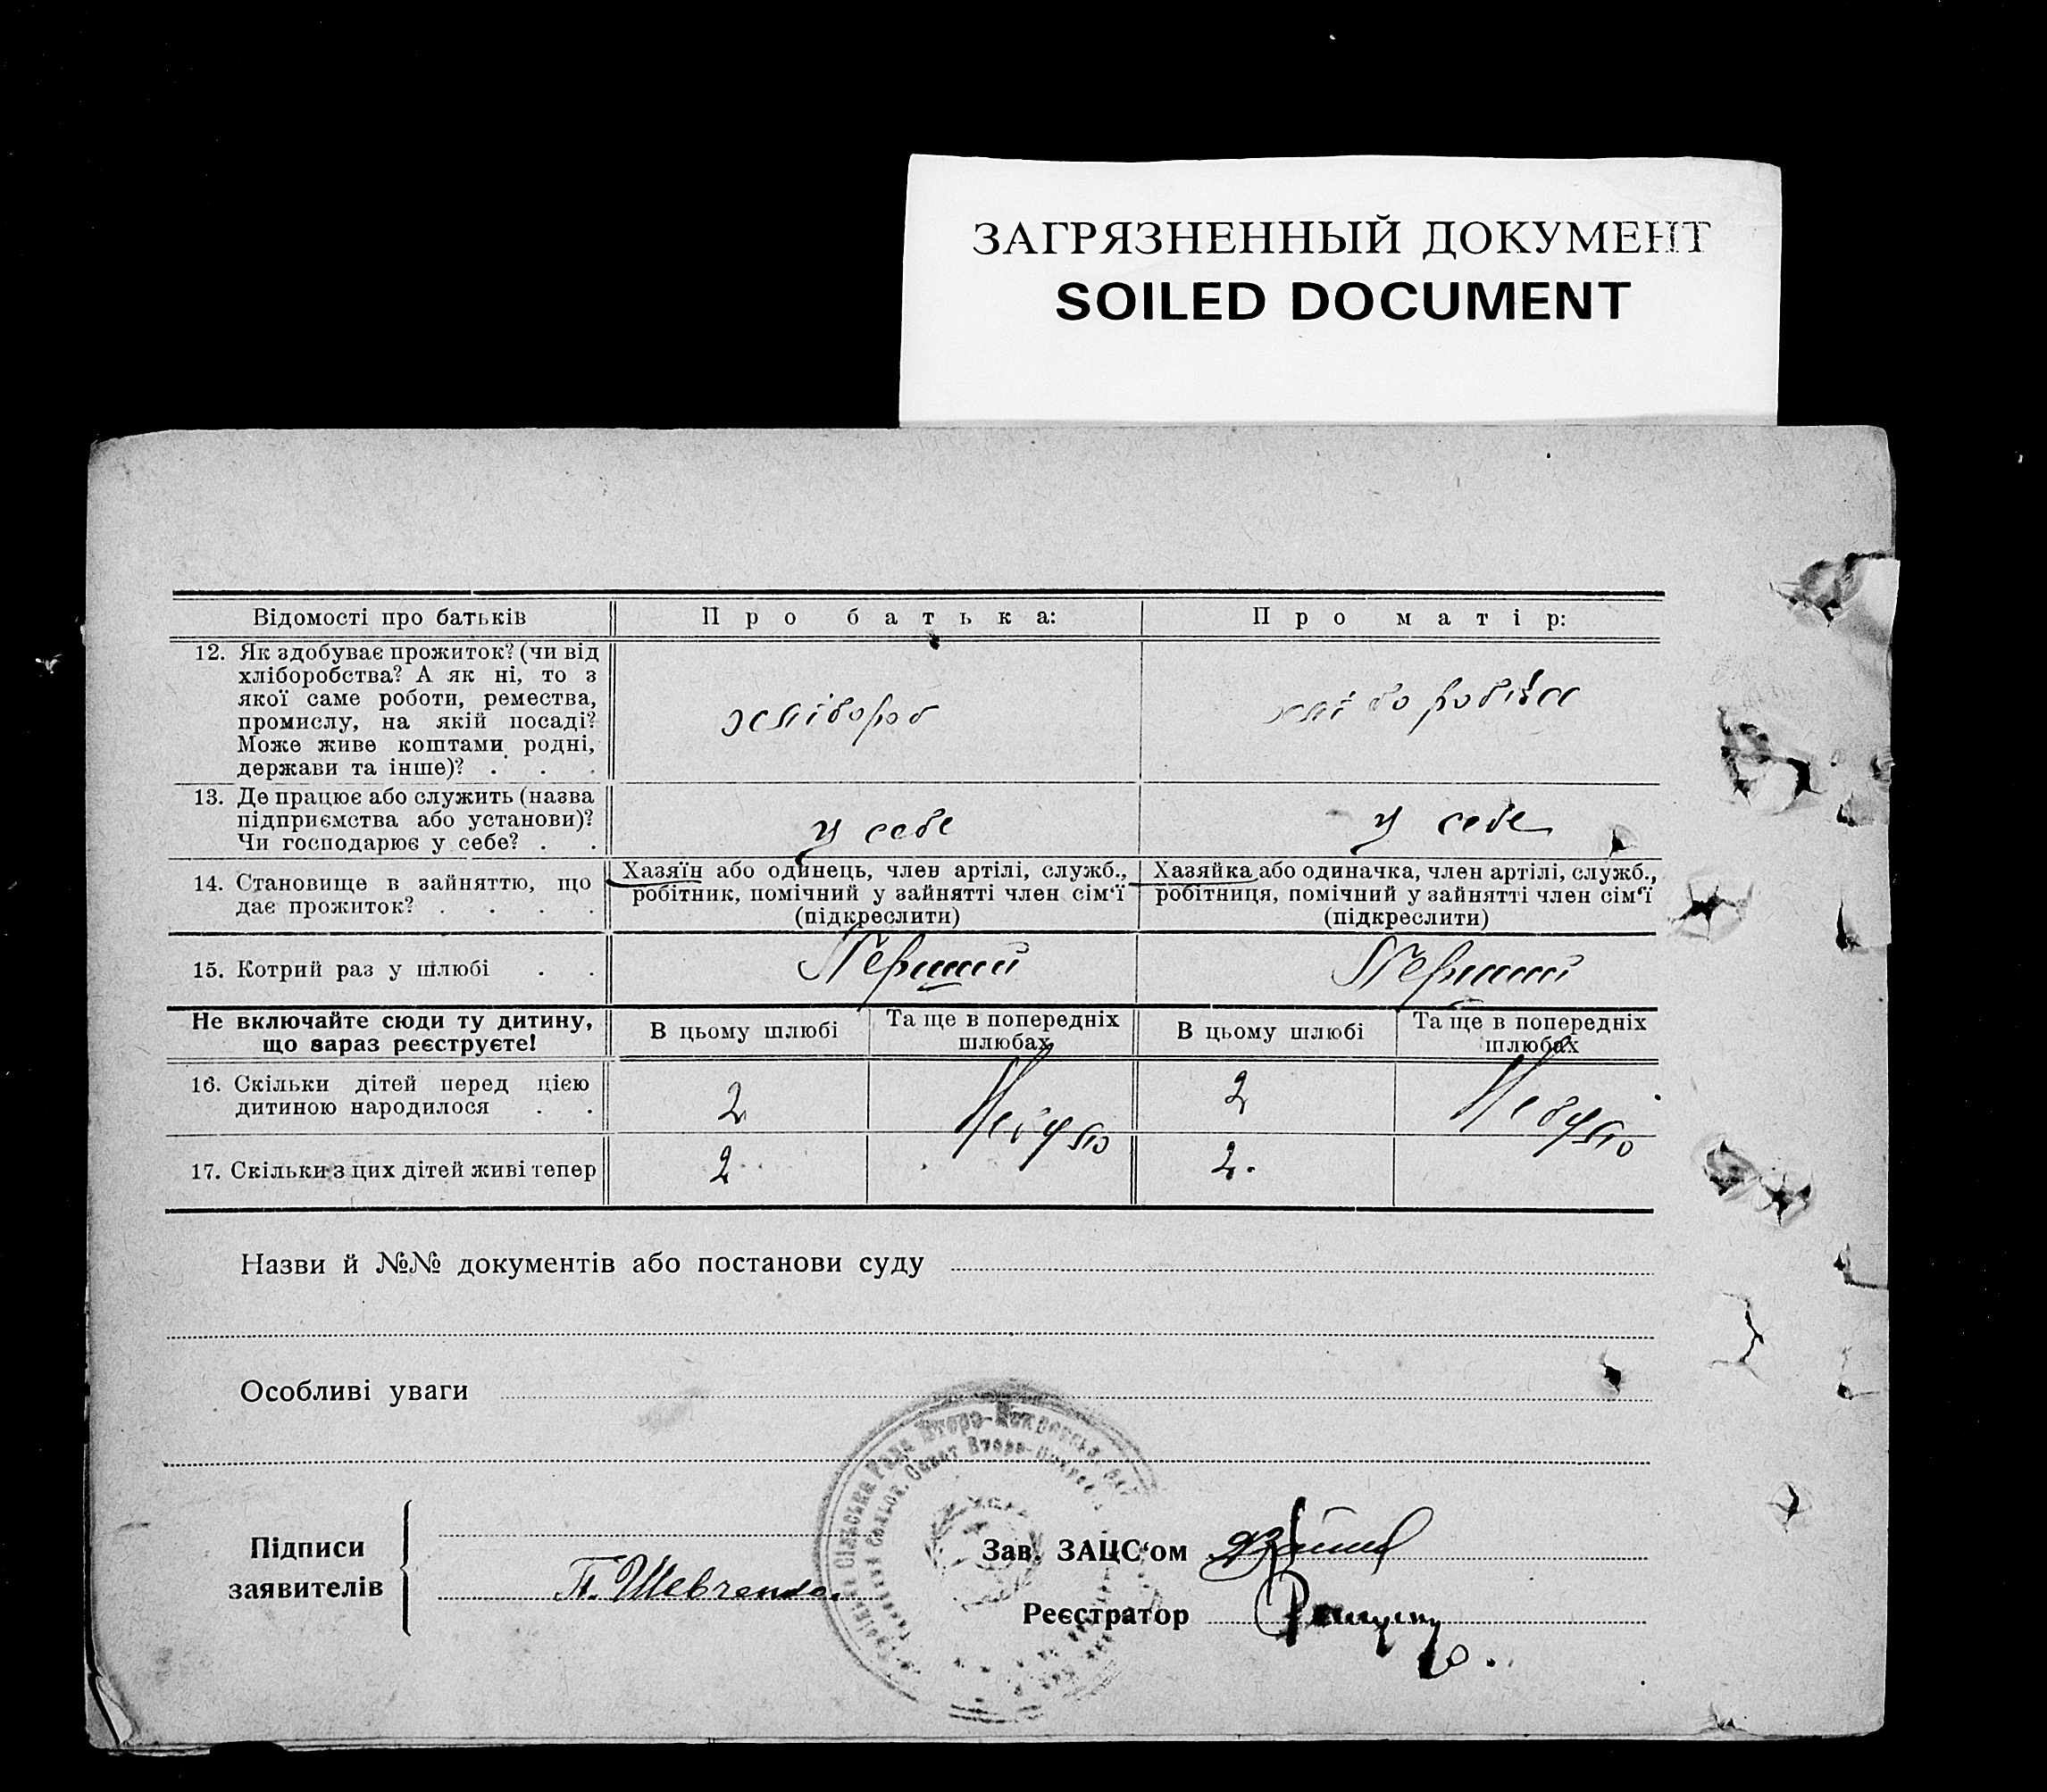 ЗАГРЯЗНЕННЫЙ ДОКУМЕНТ
SOILED DOCUMENT
Відомості про батьків
Про батька:
Про матір:
12. Як здобуває прожиток? (чи від
хліборобства? А як ні, то з
якої саме роботи, ремества,
промислу, на якій посаді?
Може живе коштами родні,
держави та інше)? . . .
хлібороб
13. Де працює або служить (назва
підприємства або установи)?
Чи господарює у себе? . .
у себе
у себе
14. Становище в зайняттю, що
дає прожиток? . . . .
Хазяїн або одинець, член артілі, служб.,
робітник, помічний у зайнятті член сім'ї
(підкреслити)
Хазяйка або одиначка, член артілі, служб.,
робітниця, помічний у зайнятті член сім'ї
(підкреслити)
15. Котрий раз у шлюбі . .
Перший
Перший
Не включайте сюди ту дитину,
що зараз реєструєте!
В цьому шлюбі
Та ще в попередніх
шлюбах
В цьому шлюбі
Та ще в попередніх
шлюбах
16. Скільки дітей перед цією
дитиною народилося . .
2
Небуло
2
Небуло
17. Скільки з цих дітей живі тепер
2
2.
Назви й №№ документів або постанови суду
Особливі уваги
Підписи
заявителів
П. Шевченко.
Зав. ЗАЦС'ом
Реєстратор